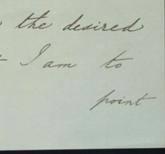 the desired
I am to
point